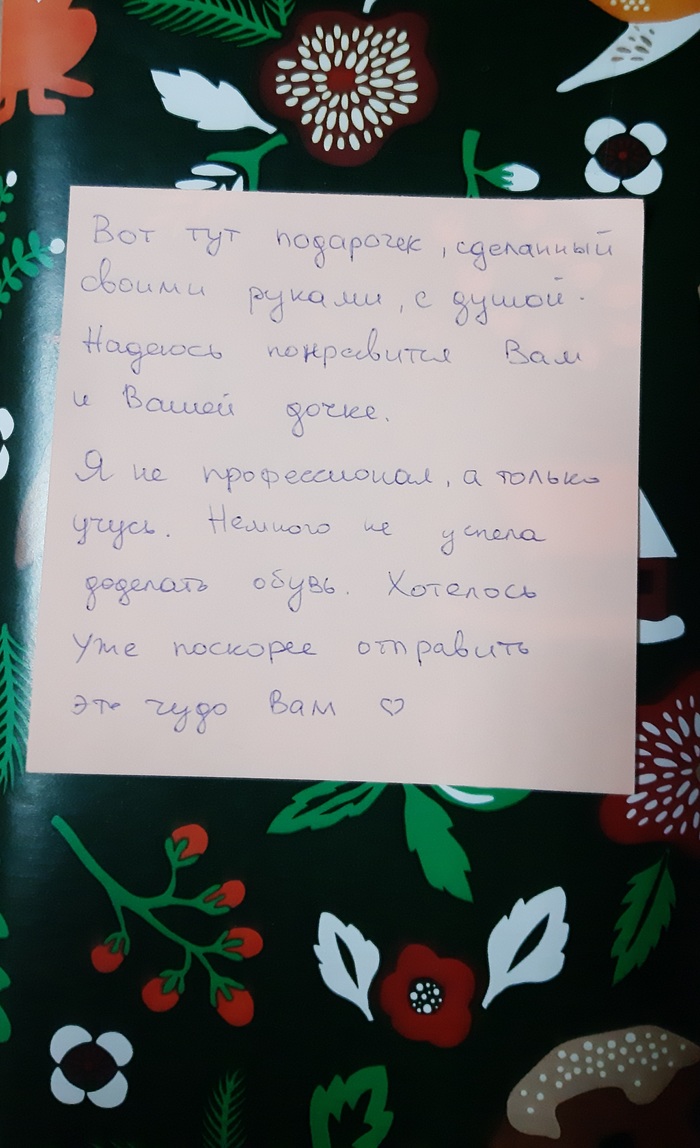 Вот тут подарочек, сделанный
своими руками, с душой.
Надеюсь понравится Вам
и Вашей дочке.
Я не профессионал, а только
учусь. Немного не успела
доделать обувь. Хотелось
уже поскорее отправить
это чудо Вам ♡